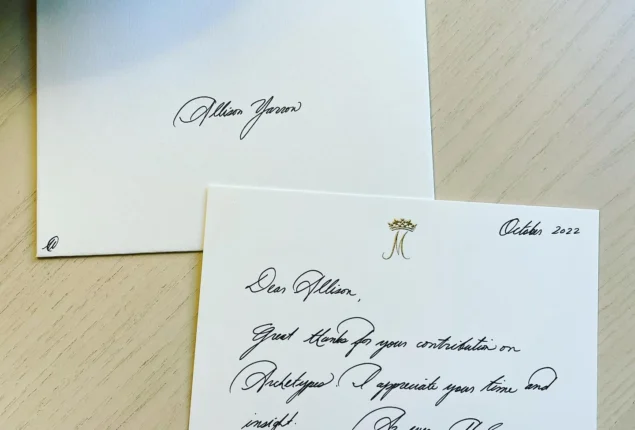 Allison Yarrow
@
M
October 2022
Dear Allison,
Great thanks for your contribution on
Archetypes. I appreciate your time and
insight. As ever,